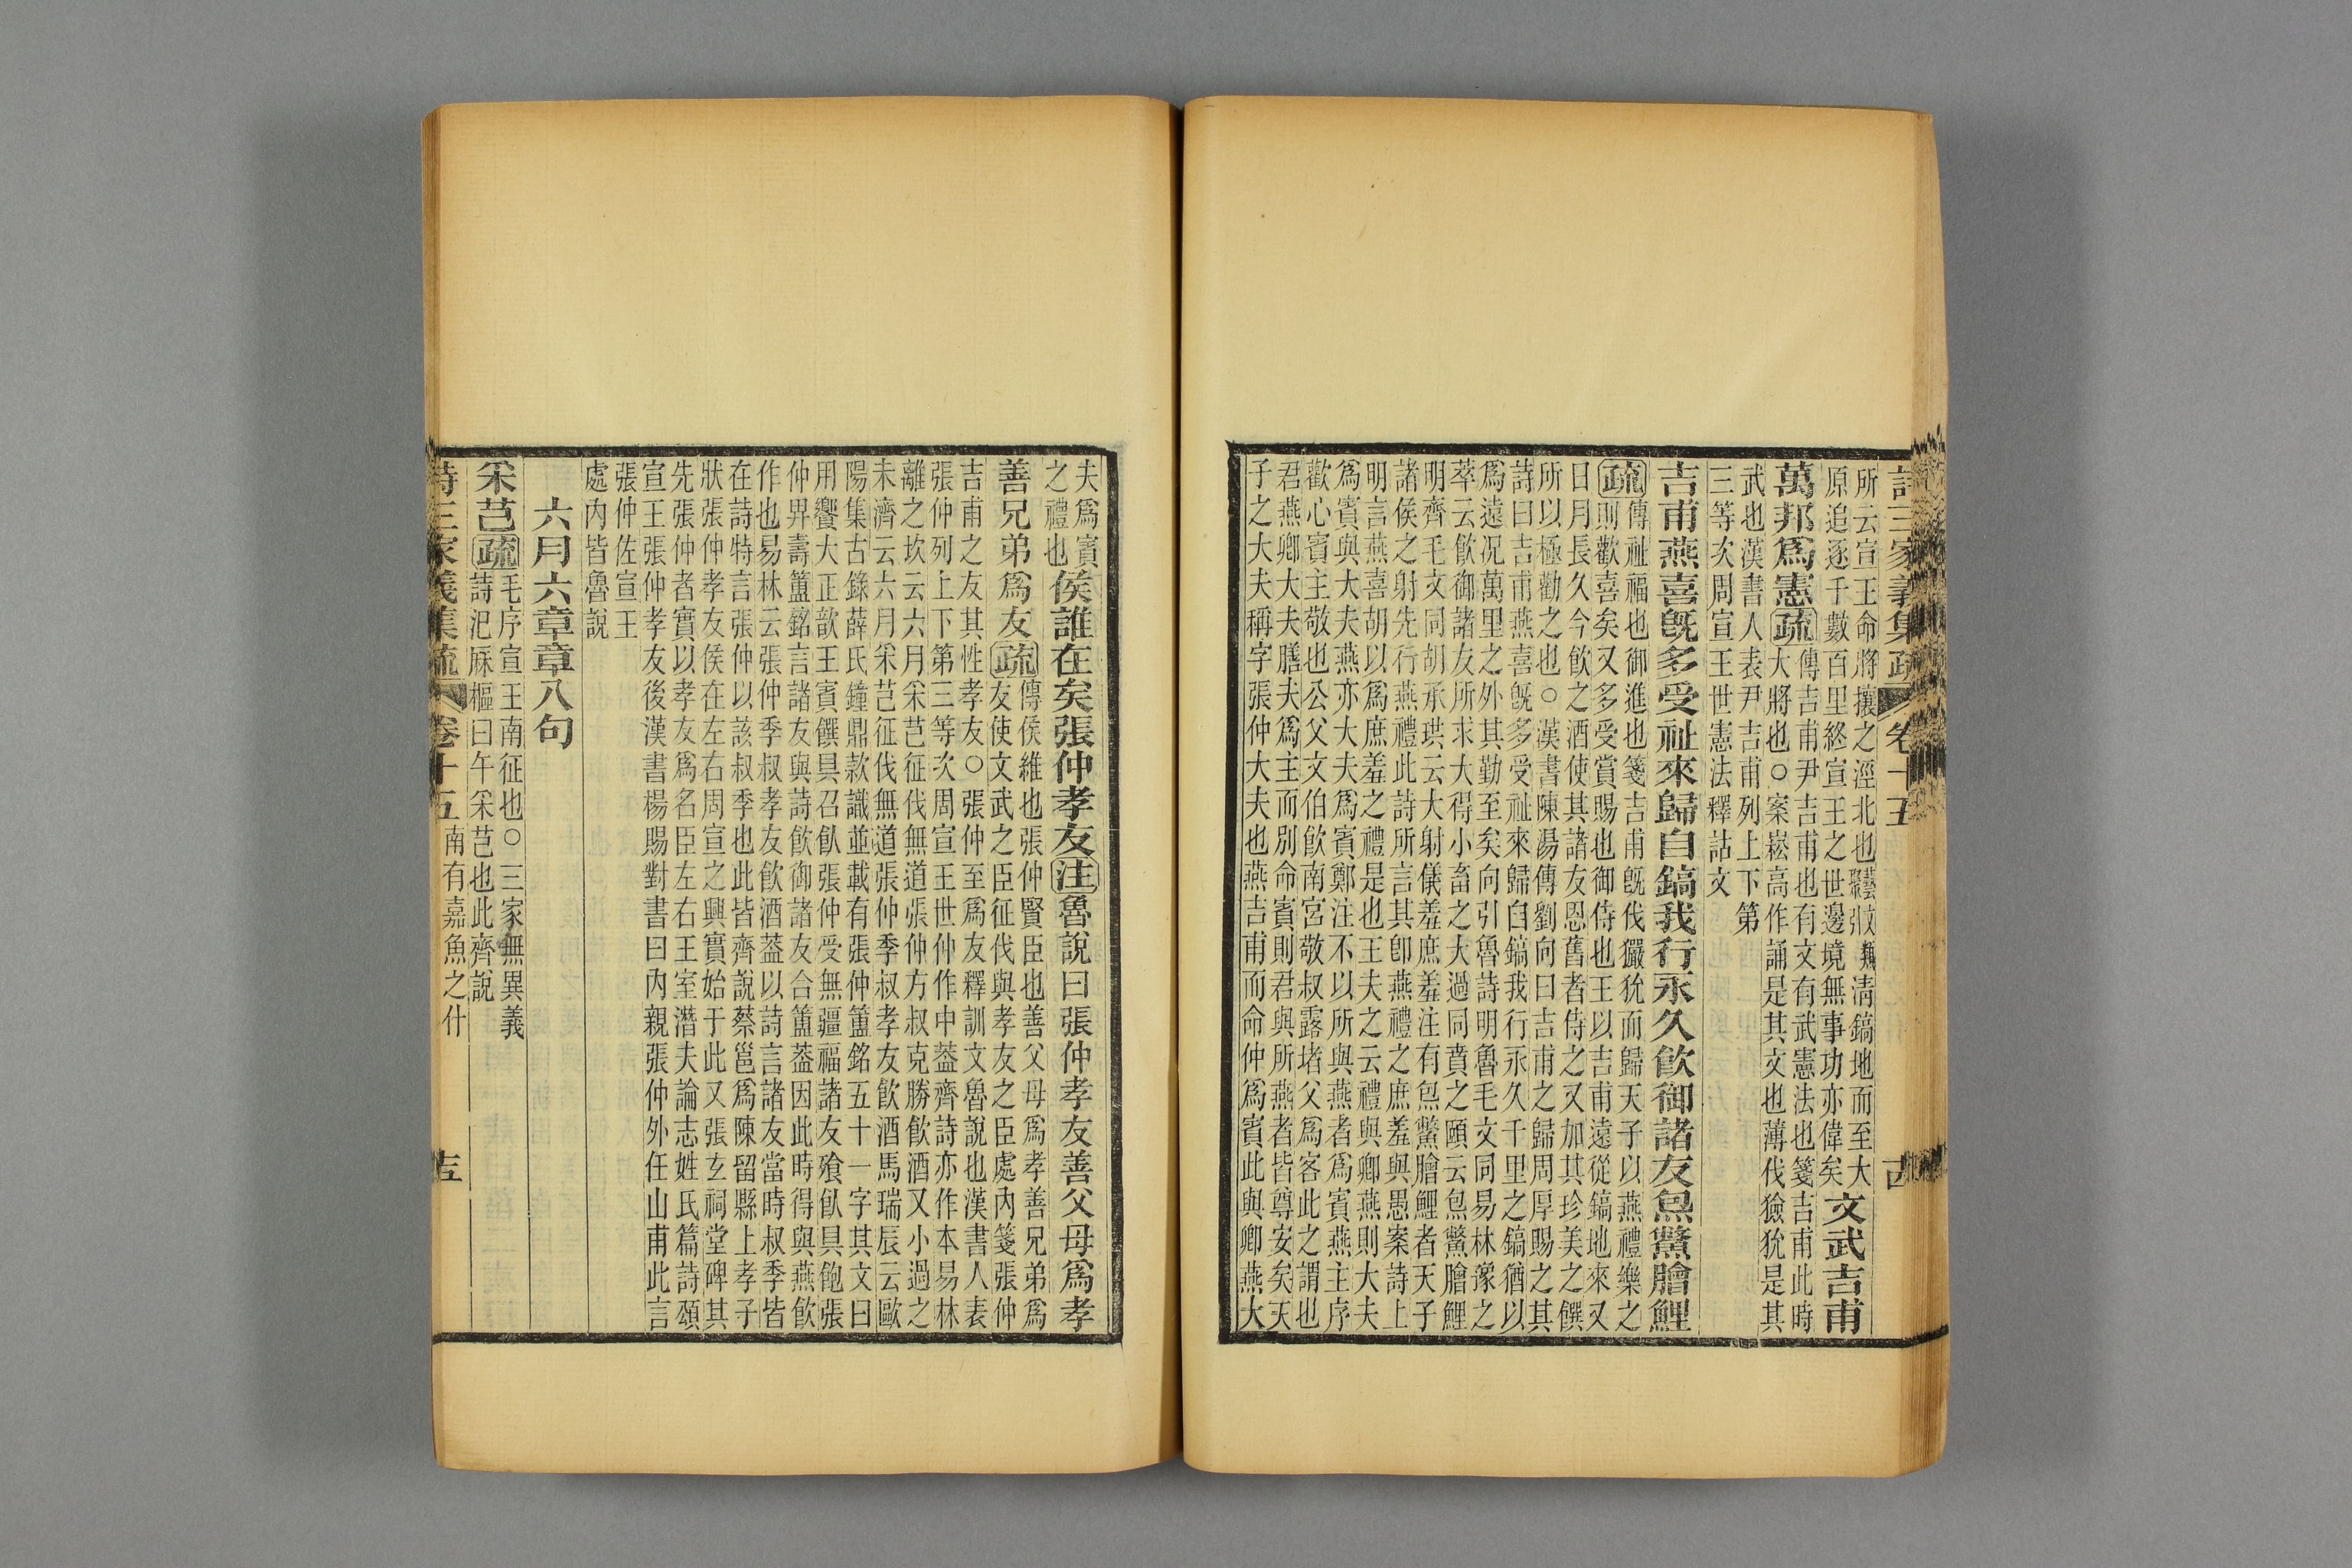 詩三家義集疏 卷十五
所云宣王命將攘之涇北也藝文類聚引清鎬地而至大
原追逐千數百里終宣王之世邊境無事功亦偉矣文武吉甫
萬邦爲憲疏傳吉甫尹吉甫也有文有武憲法也箋吉甫此時
大將也○案崧高作誦是其文也薄伐獫狁是其
武也漢書人表尹吉甫列上下第
三等次周宣王世憲法釋詁文
吉甫燕喜旣多受祉來歸自鎬我行永久飮御諸友炰鱉膾鯉
疏傳祉福也御進也箋吉甫旣伐玁狁而歸天子以燕禮樂之
則歡喜矣又多受賞賜也御侍也王以吉甫遠從鎬地來又
日月長久今飮之酒使其諸友恩舊者侍之又加其珍美之饌
所以極勸之也○漢書陳湯傳劉向曰吉甫之歸周厚賜之其
詩曰吉甫燕喜旣多受祉來歸自鎬我行永久千里之鎬猶以
爲遠況萬里之外其勤至矣向引魯詩明魯毛文同易林豫之
萃云飮御諸友所求大得小畜之大過同賁之頤云炰鱉膾鯉
明齊毛文同胡承珙云大射儀羞庶羞注有炰鱉膾鯉者天子
諸侯之射先行燕禮此詩所言其卽燕禮之庶羞與愚案詩上
明言燕喜胡以爲庶羞之禮是也王夫之云禮與卿燕則大夫
爲賓與大夫燕亦大夫爲賓鄭注不以所與燕者爲賓燕主序
歡心賓主敬也公父文伯飮南宮敬叔露堵父爲客此之謂也
君燕卿大夫膳夫爲主而別命賓則君與所燕者皆尊安矣天
子之大夫稱字張仲大夫也燕吉甫而命仲爲賓此與卿燕大
夫爲賓
之禮也
侯誰在矣張仲孝友注魯說曰張仲孝友善父母爲孝
善兄弟爲友疏傳侯維也張仲賢臣也善父母爲孝善兄弟爲
友使文武之臣征伐與孝友之臣處內箋張仲
吉甫之友其性孝友○張仲至爲友釋訓文魯說也漢書人表
張仲列上下第三等次周宣王世仲作中葢齊詩亦作本易林
離之坎云六月采芑征伐無道張仲方叔克勝飮酒又小過之
未濟云六月采芑征伐無道張仲季叔孝友飮酒馬瑞辰云歐
陽集古錄薛氏鐘鼎款識並載有張仲簠銘五十一字其文曰
用饗大正歆王賓饌具召飤張仲受無疆福諸友飱飤具飽張
仲畀壽簠銘言諸友與詩飮御諸友合簠葢因此時得與燕飮
作也易林云張仲季叔孝友飮酒葢以詩言諸友當時叔季皆
在詩特言張仲以該叔季也此皆齊說蔡邕爲陳留縣上孝子
狀張仲孝友侯在左右周宣之興實始于此又張玄祠堂碑其
先張仲者實以孝友爲名臣左右王室潛夫論志姓氏篇詩頌
宣王張仲孝友後漢書楊賜對書曰內親張仲外任山甫此言
張仲佐宣王
處內皆魯說
六月六章章八句
采芑疏毛序宣王南征也○三家無異義
詩汜厤樞曰午采芑也此齊說
詩三家義集疏 卷十五 南有嘉魚之什